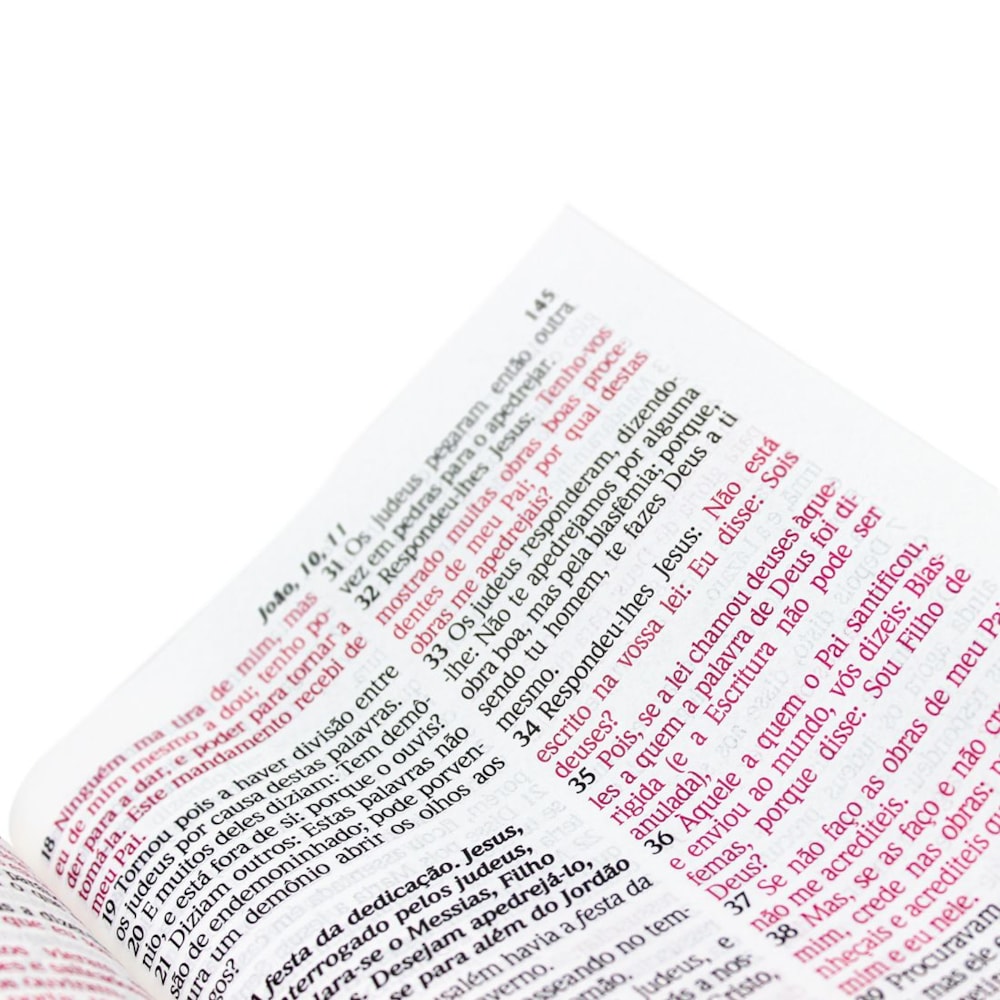 João, 10, 11
145
18 Ninguém ma tira de mim, mas
eu de mim mesmo a dou; tenho po-
der para a dar, e poder para tornar a
tomá-la. Este mandamento recebi de
meu Pai.
19 Tornou pois a haver divisão entre
os judeus por causa destas palavras.
20 E muitos deles diziam: Tem demô-
nio, e está fora de si; porque o ouvis?
21 Diziam outros: Estas palavras não
são de endemoninhado; pode porven-
tura um demônio abrir os olhos aos
gos?
A festa da dedicação. Jesus,
interrogado pelos judeus,
lara-se o Messias, Filho
s. Desejam apedrejá-lo,
se para além do Jordão
salém havia a festa da
asseando no tem-
udeus, e
s a nos-
Cristo,
31 Os judeus pegaram então outra
vez em pedras para o apedrejar.
32 Respondeu-lhes Jesus: Tenho-vos
mostrado muitas obras boas proce-
dentes de meu Pai; por qual destas
obras me apedrejais?
33 Os judeus responderam, dizendo-
-lhe: Não te apedrejamos por alguma
obra boa, mas pela blasfêmia; porque,
sendo tu homem, te fazes Deus a ti
mesmo.
34 Respondeu-lhes Jesus: Não está
escrito na vossa lei: Eu disse: Sois
deuses?
35 Pois, se a lei chamou deuses àque-
les a quem a palavra de Deus foi di-
rigida (e a Escritura não pode ser
anulada),
36 Àquele a quem o Pai santificou,
e enviou ao mundo, vós dizeis: Blas-
femas, porque disse: Sou Filho de
Deus?
37 Se não faço as obras de meu Pa
não me acrediteis.
38 Mas, se as faço e não cr
mim, crede nas obras:
nheçais e acrediteis q
mim e eu nele.
procuravam
mas ele